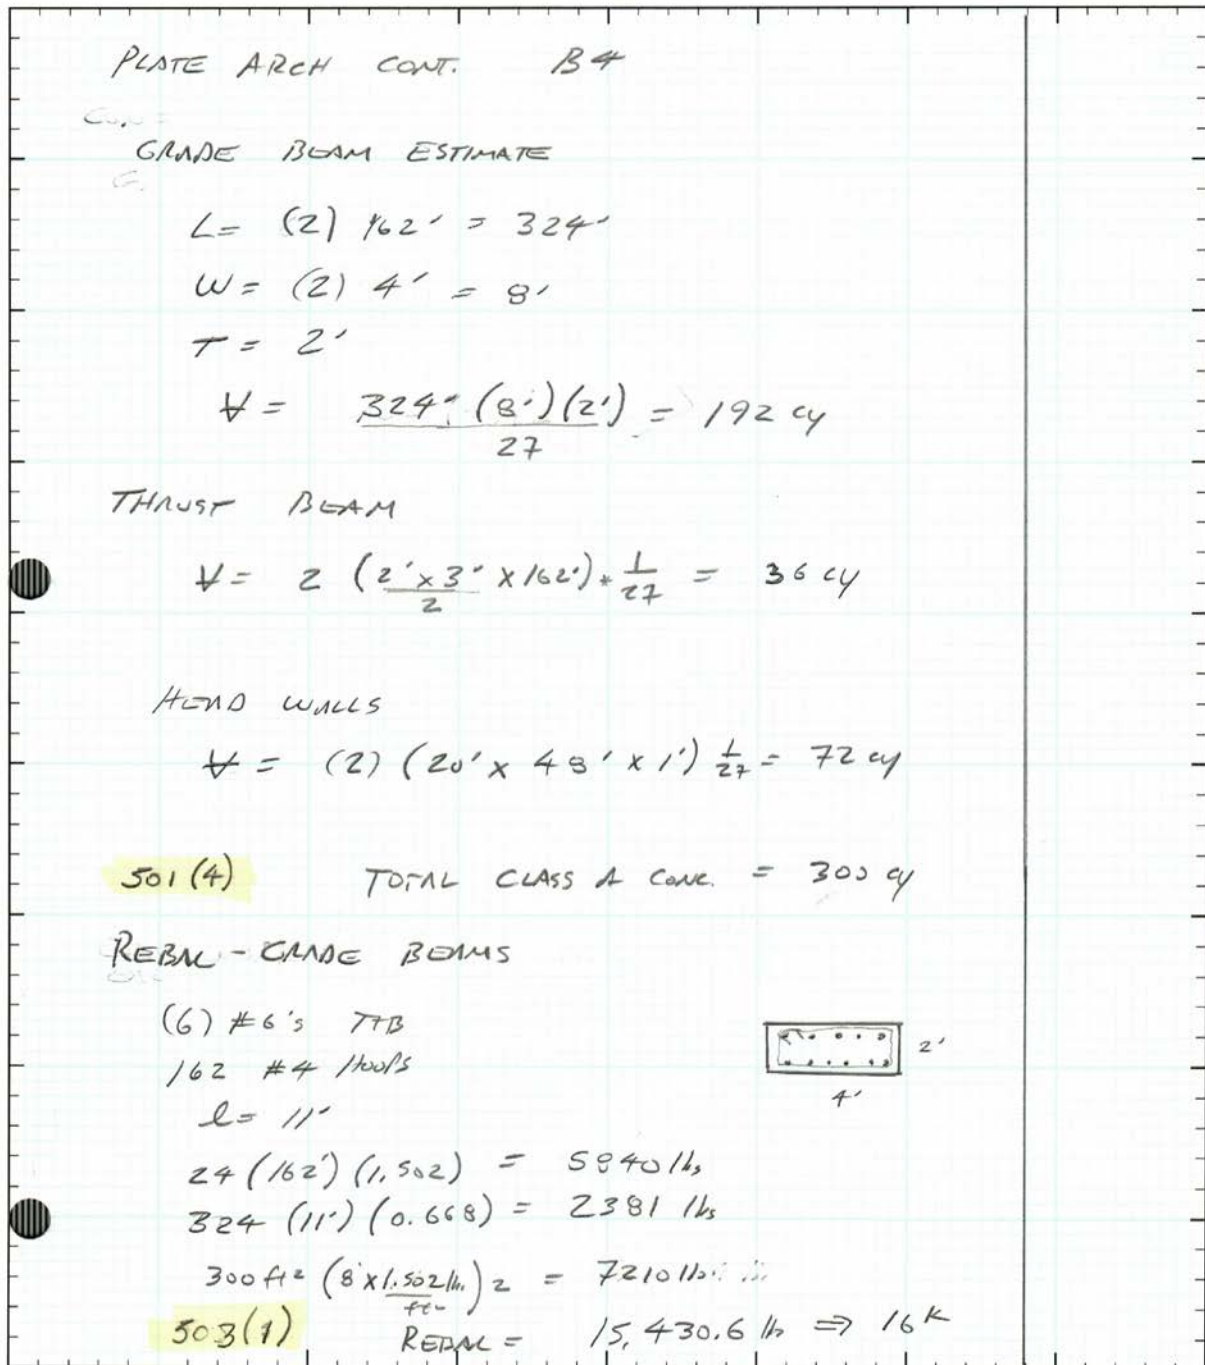 PLATE ARCH CONT. B4
GRADE BEAM ESTIMATE
L= (2) 162' = 324'
W= (2) 4' = 8'
T= 2'
V= 324' (8')(2') / 27 = 192 cy
THRUST BEAM
V= 2 (2'x3'/2 x162') * 1/27 = 36 cy
HEAD WALLS
V= (2) (20'x 48' x 1') 1/27 = 72 cy
501(4) TOTAL CLASS A CONC. = 300 cy
REBAR - GRADE BEAMS
(6) #6's T+B
162 #4 HOOPS
2'
4'
l= 11'
24 (162') (1.502) = 5840 lbs
324 (11') (0.668) = 2381 lbs
300 ft² (8 x 1.502 lb./ft²) 2 = 7210 lbs
503(1) REBAR = 15,430.6 lb ⇒ 16K